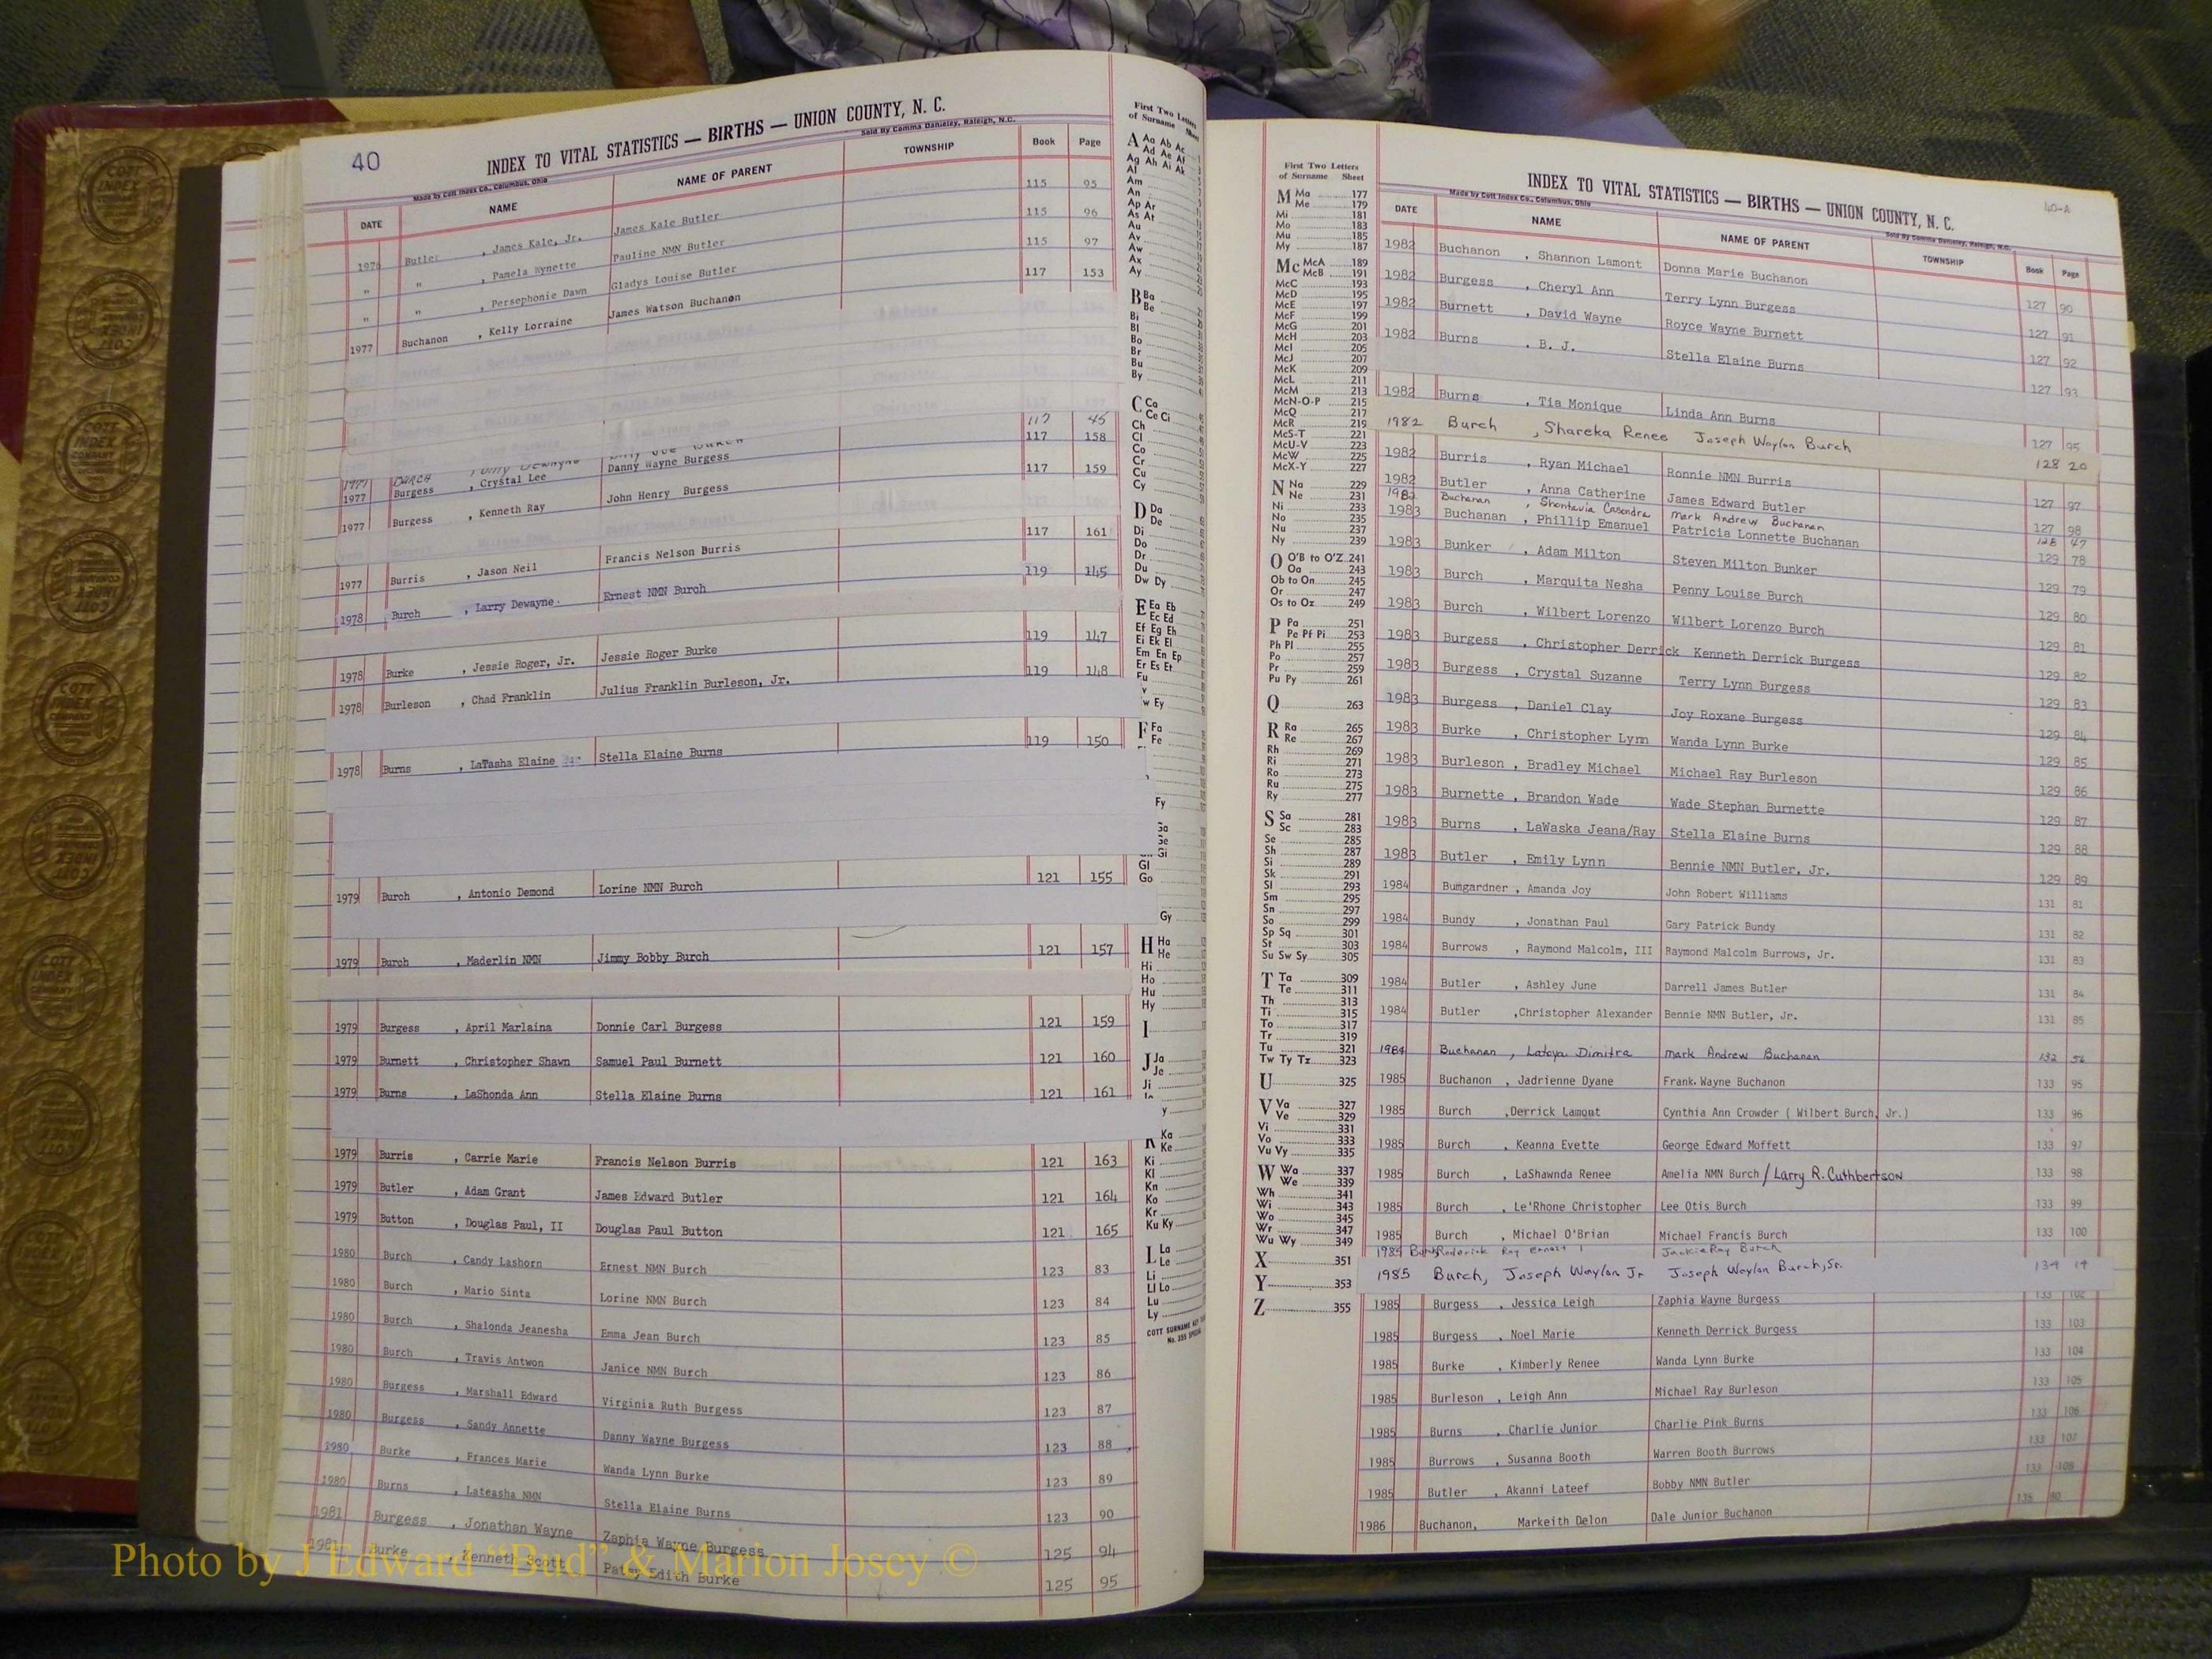 40
INDEX TO VITAL STATISTICS — BIRTHS — UNION COUNTY, N. C.
Made by Cott Index Co., Columbus, Ohio Sold By Comma Danieley, Raleigh, N.C.
DATE NAME NAME OF PARENT TOWNSHIP Book Page
1976 Butler , James Kale, Jr. James Kale Butler 115 95
" " , Pamela Wynette Pauline NMN Butler 115 96
" " , Persephonie Dawn Gladys Louise Butler 115 97
1977 Buchanon , Kelly Lorraine James Watson Buchanon 117 153
117 45
1977 Burgess , Crystal Lee Danny Wayne Burgess 117 158
1977 Burgess , Kenneth Ray John Henry Burgess 117 159
1977 Burris , Jason Neil Francis Nelson Burris 117 161
1978 Burch , Larry Dewayne Ernest NMN Burch 119 145
1978 Burke , Jessie Roger, Jr. Jessie Roger Burke 119 147
1978 Burleson , Chad Franklin Julius Franklin Burleson, Jr. 119 148
1978 Burns , LaTasha Elaine Stella Elaine Burns 119 150
1979 Burch , Antonio Demond Lorine NMN Burch 121 155
1979 Burch , Maderlin NMN Jimmy Bobby Burch 121 157
1979 Burgess , April Marlaina Donnie Carl Burgess 121 159
1979 Burnett , Christopher Shawn Samuel Paul Burnett 121 160
1979 Burns , LaShonda Ann Stella Elaine Burns 121 161
1979 Burris , Carrie Marie Francis Nelson Burris 121 163
1979 Butler , Adam Grant James Edward Butler 121 164
1979 Button , Douglas Paul, II Douglas Paul Button 121 165
1980 Burch , Candy Lashorn Ernest NMN Burch 123 83
1980 Burch , Mario Sinta Lorine NMN Burch 123 84
1980 Burch , Shalonda Jeanesha Emma Jean Burch 123 85
1980 Burch , Travis Antwon Janice NMN Burch 123 86
1980 Burgess , Marshall Edward Virginia Ruth Burgess 123 87
1980 Burgess , Sandy Annette Danny Wayne Burgess 123 88
1980 Burke , Frances Marie Wanda Lynn Burke 123 89
1980 Burns , Lateasha NMN Stella Elaine Burns 123 90
1981 Burgess , Jonathan Wayne Zaphia Wayne Burgess 125 94
1981 Burke Kenneth Scott Patsy Edith Burke 125 95
First Two Letters
of Surname Sheet
A Aa Ab Ac
Ad Ae Af
Ag Ah Ai Ak
Al
Am
An
Ap Ar
As At
Au
Av
Aw
Ax
Ay
B Ba
Be
Bi
Bl
Bo
Br
Bu
By
C Ca
Ce Ci
Ch
Cl
Co
Cr
Cu
Cy
D Da
De
Di
Do
Dr
Du
Dw Dy
E Ea Eb
Ec Ed
Ef Eg Eh
Ei Ek El
Em En Ep
Er Es Et
Eu
v
w Ey
F Fa
Fe
Fy
Ga
Ge
Gi
Gl
Go
Gy
H Ha
He
Hi
Ho
Hu
Hy
I
J Ja
Je
Ji
y
K Ka
Ke
Ki
Kl
Kn
Ko
Kr
Ku Ky
L La
Le
Li
Ll Lo
Lu
Ly
First Two Letters
of Surname Sheet
M Ma 177
Me 179
Mi 181
Mo 183
Mu 185
My 187
Mc McA 189
McB 191
McC 193
McD 195
McE 197
McF 199
McG 201
McH 203
McI 205
McJ 207
McK 209
McL 211
McM 213
McN-O-P 215
McQ 217
McR 219
McS-T 221
McU-V 223
McW 225
McX-Y 227
N Na 229
Ne 231
Ni 233
No 235
Nu 237
Ny 239
O O'B to O'Z 241
Oa 243
Ob to On 245
Or 247
Os to Oz 249
P Pa 251
Pe Pf Pi 253
Ph Pl 255
Po 257
Pr 259
Pu Py 261
Q 263
R Ra 265
Re 267
Rh 269
Ri 271
Ro 273
Ru 275
Ry 277
S Sa 281
Sc 283
Se 285
Sh 287
Si 289
Sk 291
Sl 293
Sm 295
Sn 297
So 299
Sp Sq 301
St 303
Su Sw Sy 305
T Ta 309
Te 311
Th 313
Ti 315
To 317
Tr 319
Tu 321
Tw Ty Tz 323
U 325
V Va 327
Ve 329
Vi 331
Vo 333
Vu Vy 335
W Wa 337
We 339
Wh 341
Wi 343
Wo 345
Wr 347
Wu Wy 349
X 351
Y 353
Z 355
40-A
INDEX TO VITAL STATISTICS — BIRTHS — UNION COUNTY, N. C.
Made by Cott Index Co., Columbus, Ohio Sold By Comma Danieley, Raleigh, N.C.
DATE NAME NAME OF PARENT TOWNSHIP Book Page
1982 Buchanon , Shannon Lamont Donna Marie Buchanon 127 90
1982 Burgess , Cheryl Ann Terry Lynn Burgess 127 91
1982 Burnett , David Wayne Royce Wayne Burnett 127 92
1982 Burns , B. J. Stella Elaine Burns 127 93
1982 Burns , Tia Monique Linda Ann Burns 127 95
1982 Burch , Shareka Renee Joseph Waylon Burch 128 20
1982 Burris , Ryan Michael Ronnie NMN Burris 127 97
1982 Butler , Anna Catherine James Edward Butler 127 98
1982 Buchanan , Shontavia Casandra Mark Andrew Buchanan 128 47
1983 Buchanan , Phillip Emanuel Patricia Lonnette Buchanan 129 78
1983 Bunker , Adam Milton Steven Milton Bunker 129 79
1983 Burch , Marquita Nesha Penny Louise Burch 129 80
1983 Burch , Wilbert Lorenzo Wilbert Lorenzo Burch 129 81
1983 Burgess , Christopher Derrick Kenneth Derrick Burgess 129 82
1983 Burgess , Crystal Suzanne Terry Lynn Burgess 129 83
1983 Burgess , Daniel Clay Joy Roxane Burgess 129 84
1983 Burke , Christopher Lynn Wanda Lynn Burke 129 85
1983 Burleson , Bradley Michael Michael Ray Burleson 129 86
1983 Burnette , Brandon Wade Wade Stephan Burnette 129 87
1983 Burns , LaWaska Jeana/Ray Stella Elaine Burns 129 88
1983 Butler , Emily Lynn Bennie NMN Butler, Jr. 129 89
1984 Bumgardner , Amanda Joy John Robert Williams 131 81
1984 Bundy , Jonathan Paul Gary Patrick Bundy 131 82
1984 Burrows , Raymond Malcolm, III Raymond Malcolm Burrows, Jr. 131 83
1984 Butler , Ashley June Darrell James Butler 131 84
1984 Butler ,Christopher Alexander Bennie NMN Butler, Jr. 131 85
1984 Buchanan , Latoya Dimitra Mark Andrew Buchanan 132 56
1985 Buchanon , Jadrienne Dyane Frank. Wayne Buchanon 133 95
1985 Burch ,Derrick Lamont Cynthia Ann Crowder ( Wilbert Burch, Jr.) 133 96
1985 Burch , Keanna Evette George Edward Moffett 133 97
1985 Burch , LaShawnda Renee Amelia NMN Burch / Larry R. Cuthbertson 133 98
1985 Burch , Le'Rhone Christopher Lee Otis Burch 133 99
1985 Burch , Michael O'Brian Michael Francis Burch 133 100
1985 Burch Roderick Ray Ernest Jackie Ray Burch
1985 Burch, Joseph Waylon Jr Joseph Waylon Burch, Sr. 134 19
1985 Burgess , Jessica Leigh Zaphia Wayne Burgess 133 102
1985 Burgess , Noel Marie Kenneth Derrick Burgess 133 103
1985 Burke , Kimberly Renee Wanda Lynn Burke 133 104
1985 Burleson , Leigh Ann Michael Ray Burleson 133 105
1985 Burns , Charlie Junior Charlie Pink Burns 133 106
1985 Burrows , Susanna Booth Warren Booth Burrows 133 107
1985 Butler , Akanni Lateef Bobby NMN Butler 133 108
1986 Buchanon, Markeith Delon Dale Junior Buchanon 135 80
Photo by J Edward “Bud” & Marion Josey ©